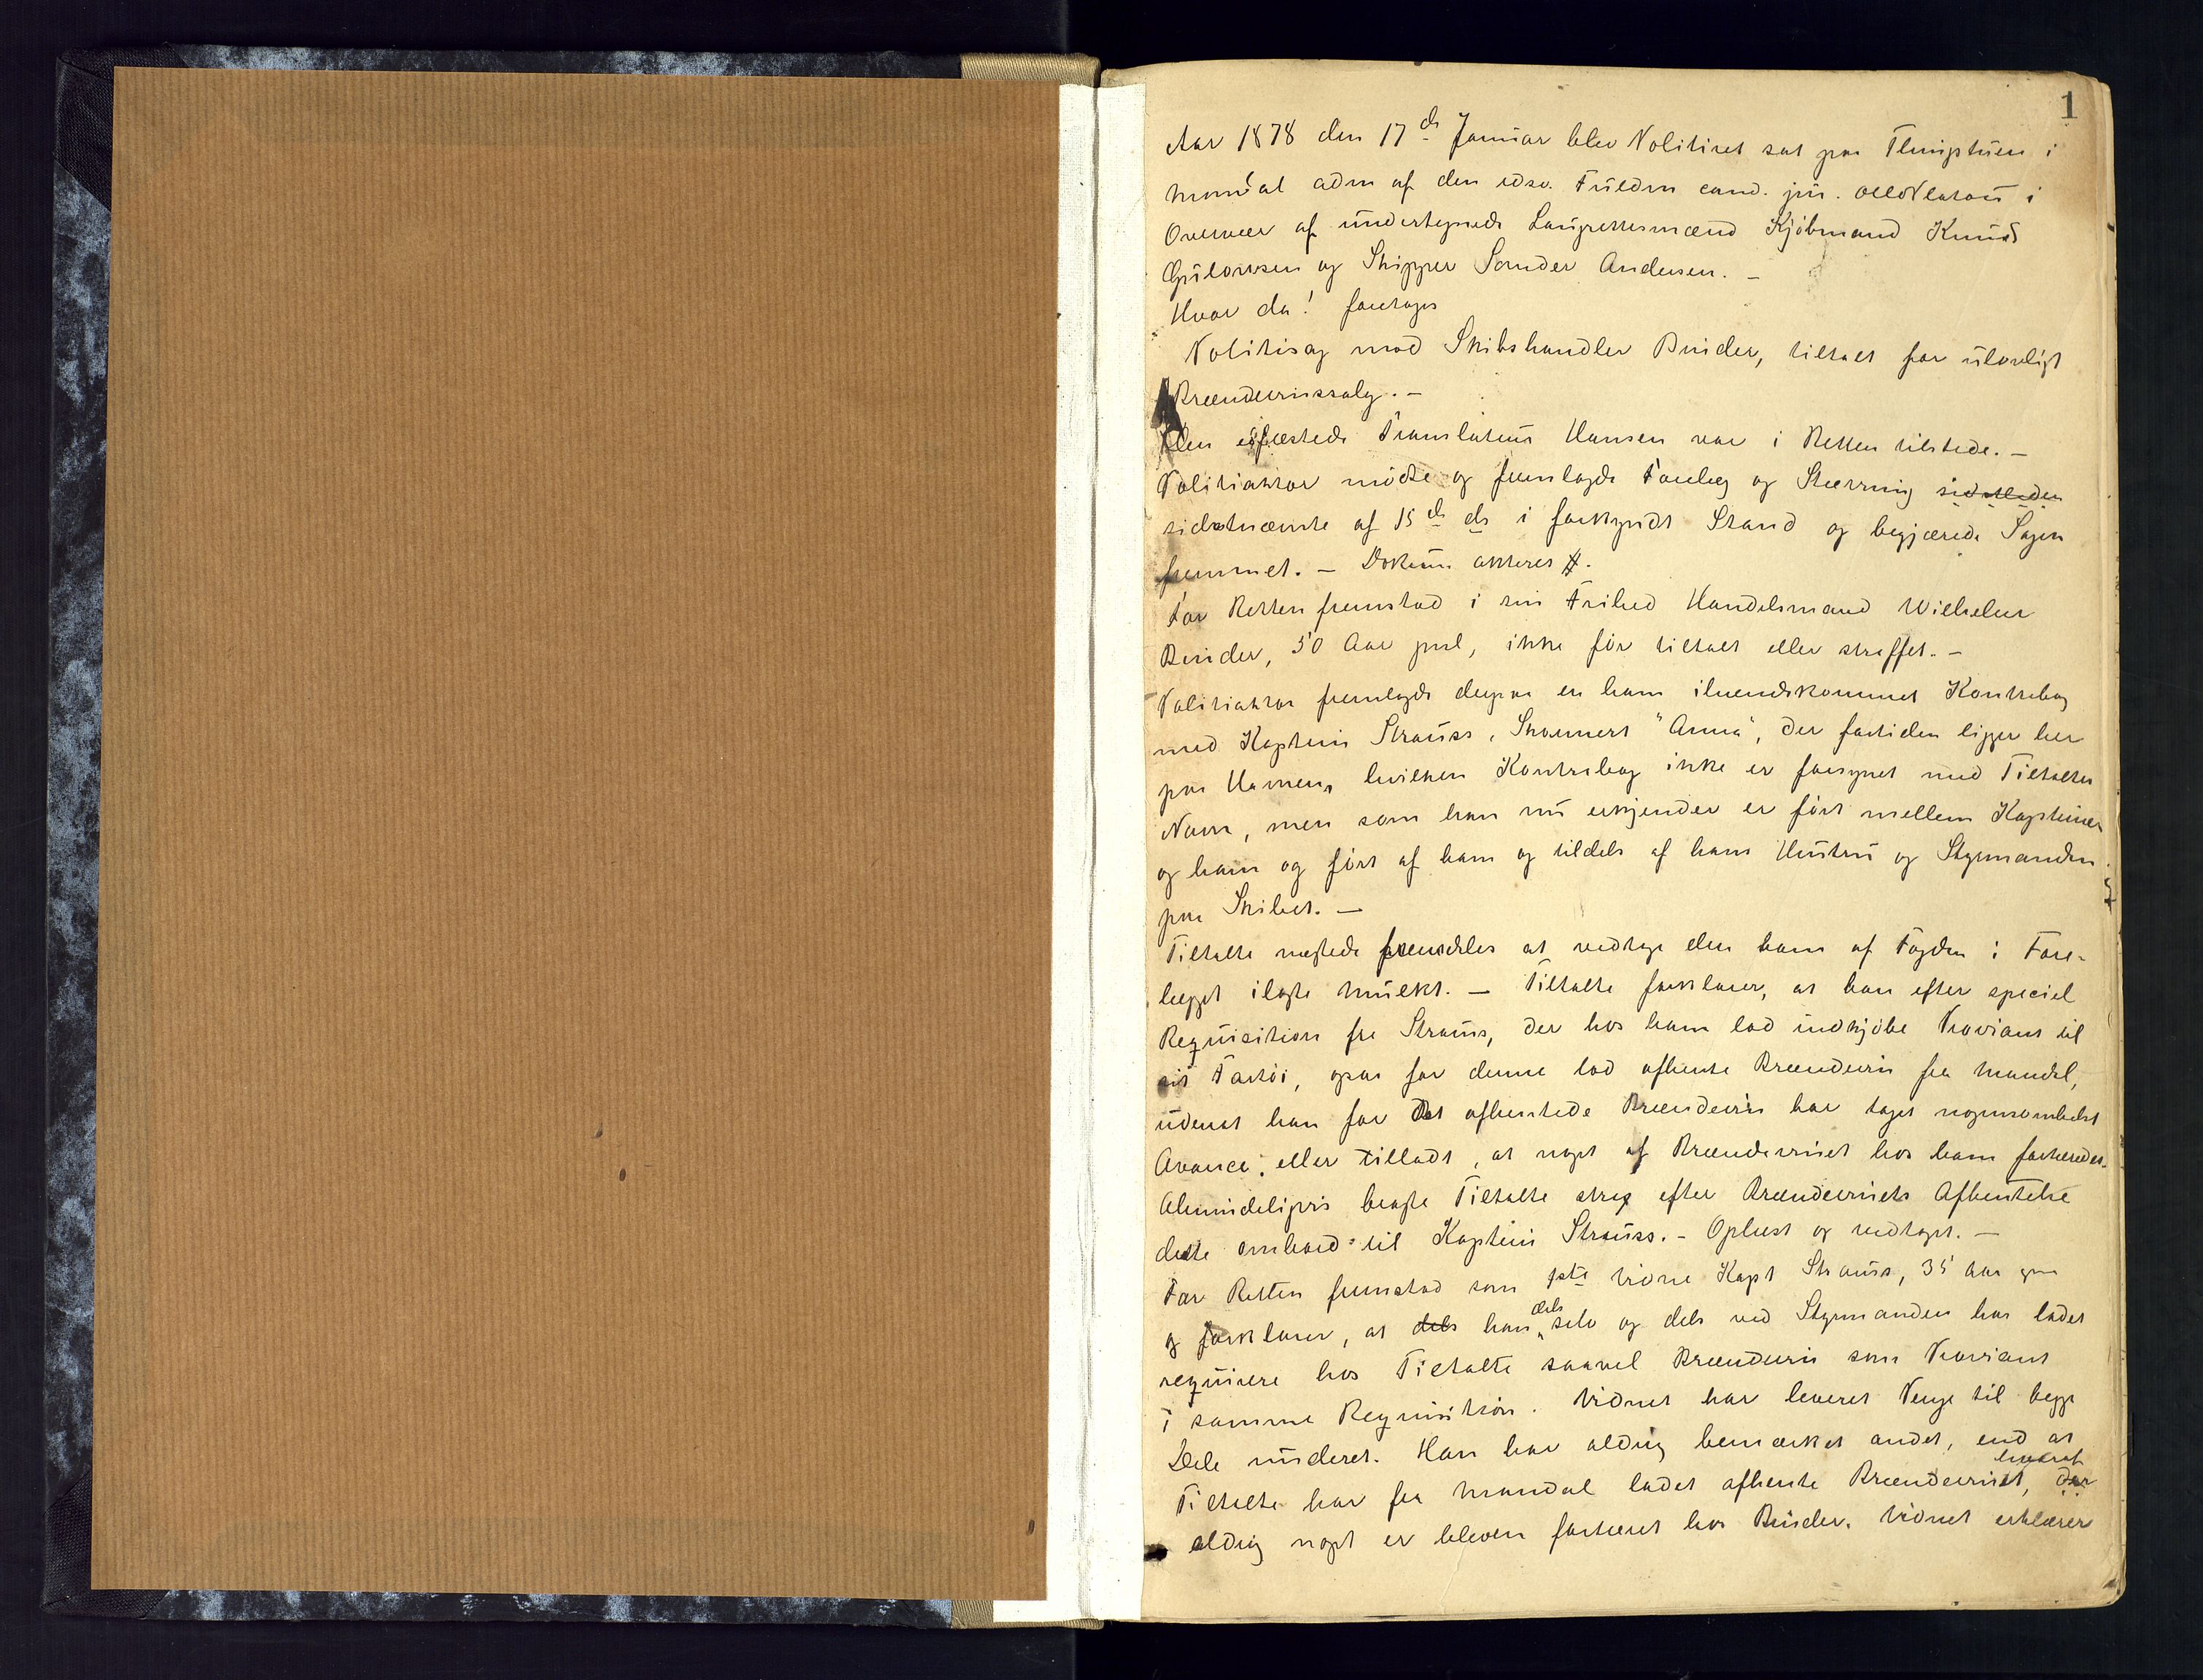 1
Aar 1878 den 17de Januar blev Politiret sat paa i
Mandal adm af den edsv. Fuldm cand. jur. i
Overvær af undertegnede Laugrettesmænd Kjøbmand Knud
Gulovsen og Skipper Sander Andersen. –
Hvor da! foretages
Politisag mod Skibshandler Binder, tiltalt for ulovligt
Brændevinssalg. –
Den edfæstede Translatør Hansen var i Retten tilstede. –
Politiaktor mødte og fremlagde Forelæg og Stævning
sidstnævnte af 15de ds i forkyndt Stand og begjærede Sagen
fremmet. – Dokum akteres #.
For Retten fremstod i sin Frihed Handelsmand Wilhelm
Binder, 50 Aar gml, ikke før tiltalt eller straffet. –
Politiaktor fremlagde derpaa en ham ihændekommet Kontrabog
med Kaptein Strauss, Skonnert "Anna", der fortiden ligger her
paa Havnen, hvilken Kontrabog ikke er forsynet med Tiltaltes
Navn, men som han nu erkjender er ført mellem Kapteinen
og ham og ført af ham og tildels af hans Hustru og Styrmanden
paa Skibet. –
Tiltalte nægtede fremdeles at vedtage den ham af Fogden i Fore-
lægget ilagte Mulkt. – Tiltalte forklarer, at han efter speciel
Requisition fra Strauss, der hos ham lod indkjøbe Proviant til
sit Fartøi, ogsaa for denne lod afhente Brændevin fra Mandal,
udenat han for det afhentede Brændevin har taget nogensomhelst
Avance, eller tilladt, at noget af Brændevinet hos ham fortæredes.
Almindeligvis bragte Tiltalte strax efter Brændevinets Afhentelse
dette ombord til Kaptein Strauss. – Oplæst og vedtaget. –
For Retten fremstod som 1ste Vidne Kapt Strauss, 35 Aar gm
og forklarer, at dels han dels selv og dels ved Styrmanden har ladet
requirere hos Tiltalte saavel Brændevin som Proviant
i samme Requisition. Vidnet har leveret Penge til begge
Dele underet. Han har aldrig bemærket andet, end at
Tiltalte har fra Mandal ladet afhente Brændevinet, hvoraf
aldrig noget er bleven fortæret hos Binder. Vidnet erklærer